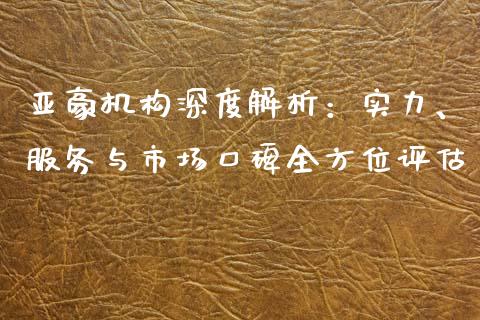 亚豪机构深度解析：实力、
服务与市场口碑全方位评估